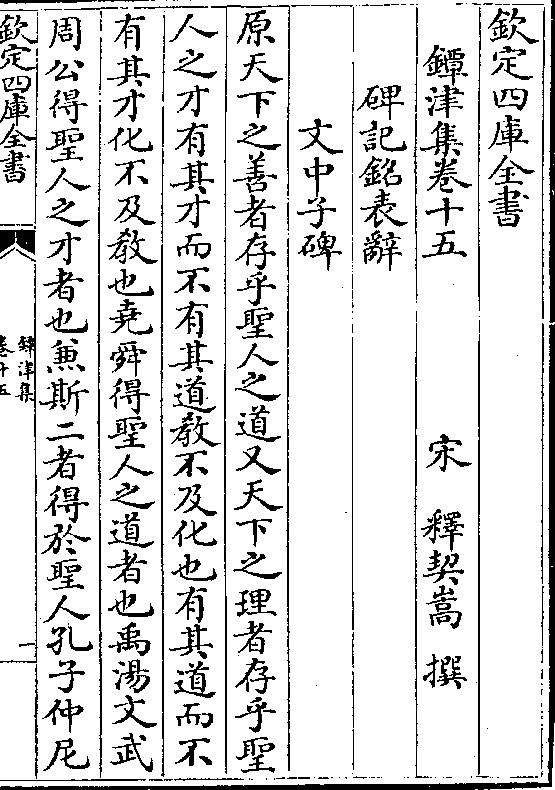 欽定四庫全書
鐔津集卷十五 宋 釋契嵩 撰
碑記銘表辭
文中子碑
原天下之善者存乎聖人之道又天下之理者存乎聖
人之才有其才而不有其道教不及化也有其道而不
有其才化不及教也堯舜得聖人之道者也禹湯文武
周公得聖人之才者也兼斯二者得於聖人孔子仲尼
欽定四庫全書
鐔津集
卷十五
一